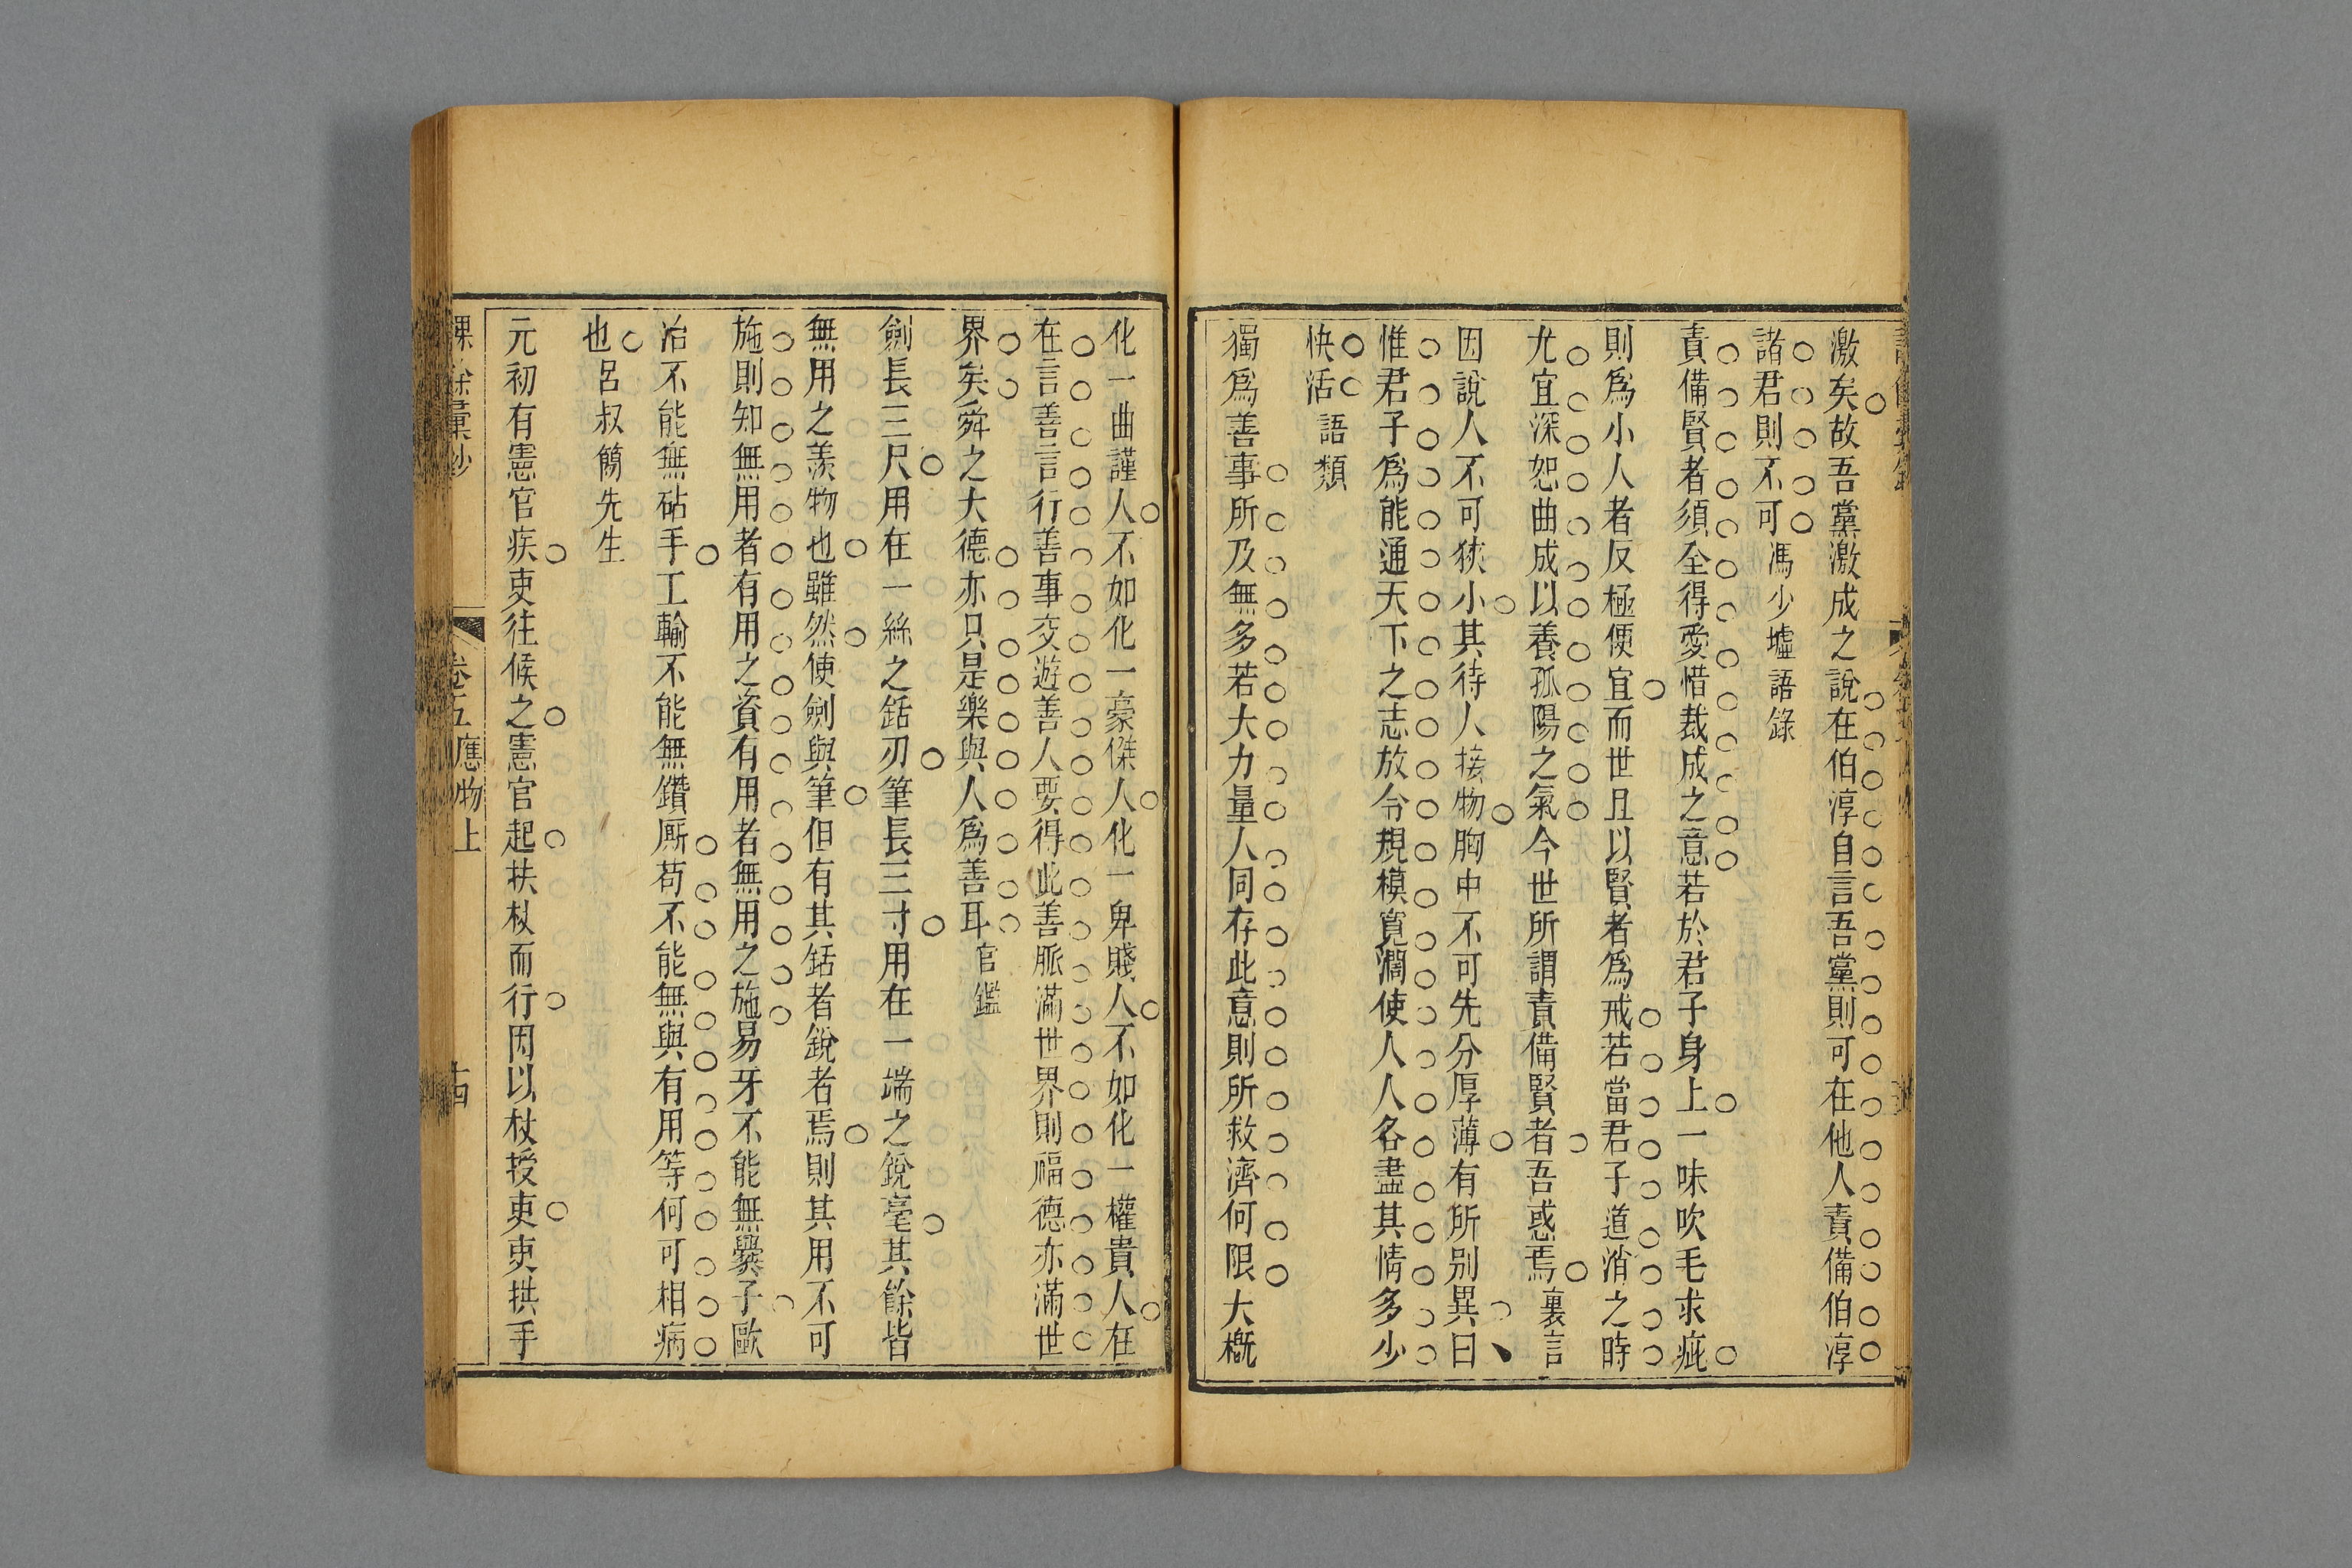 激矣故吾黨激成之說在伯淳自言吾黨則可在他人責備伯淳
諸君則不可馮少墟語錄
責備賢者須全得愛惜裁成之意若於君子身上一味吹毛求疵
則爲小人者反極便宜而世且以賢者爲戒若當君子道消之時
尤宜深恕曲成以養孤陽之氣今世所謂責備賢者吾惑焉裏言
因說人不可狹小其待人接物胸中不可先分厚薄有所別異曰
惟君子爲能通天下之志放令規模寬濶使人人各盡其情多少
快活語類
獨爲善事所及無多若大力量人同存此意則所救濟何限大槪
化一曲謹人不如化一豪傑人化一卑賤人不如化一權貴人在
在言善言行善事交遊善人要得此善脈滿世界則福德亦滿世
界矣舜之大德亦只是樂與人爲善耳官鑑
劍長三尺用在一絲之銛刃筆長三寸用在一端之銳毫其餘皆
無用之羨物也雖然使劍與筆但有其銛者銳者焉則其用不可
施則知無用者有用之資有用者無用之施易牙不能無爨子歐
冶不能無砧手工輸不能無鑽厮苟不能無與有用等何可相病
也呂叔簡先生
元初有憲官疾吏往候之憲官起扶杖而行因以杖授吏吏拱手
卷五應物上